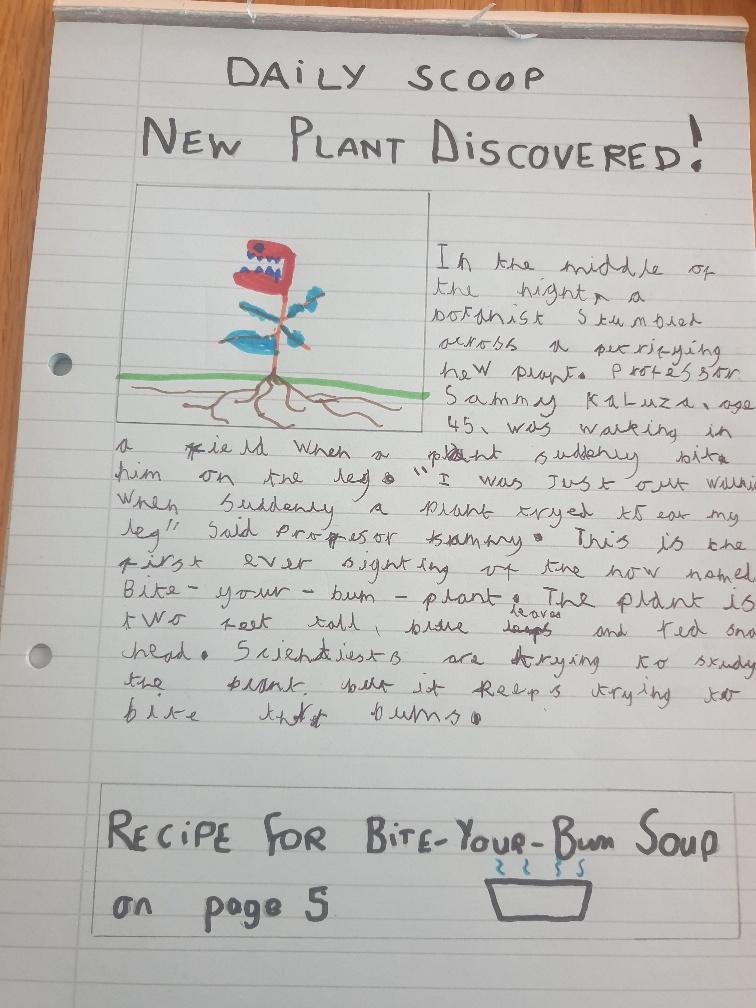 DAILY SCOOP
NEW PLANT DISCOVERED!
In the middle of
the night, a
botanist stumbled
across a petrifying
new plant. Professor
Sammy Kaluza, age
45, was walking in
a field when a plant suddenly bite
him on the leg. "I was Just out walki
when suddenly a plant tryed to eat my
leg" said Proffesor Sammy. This is the
first ever sighting of the now named
Bite-your-bum-plant. The plant is
two feet tall, blue leaves and red
head. Scientiests are trying to study
the plant, but it keeps trying to
bite bums.
RECIPE FOR BITE-YOUR-BUM SOUP
on page 5